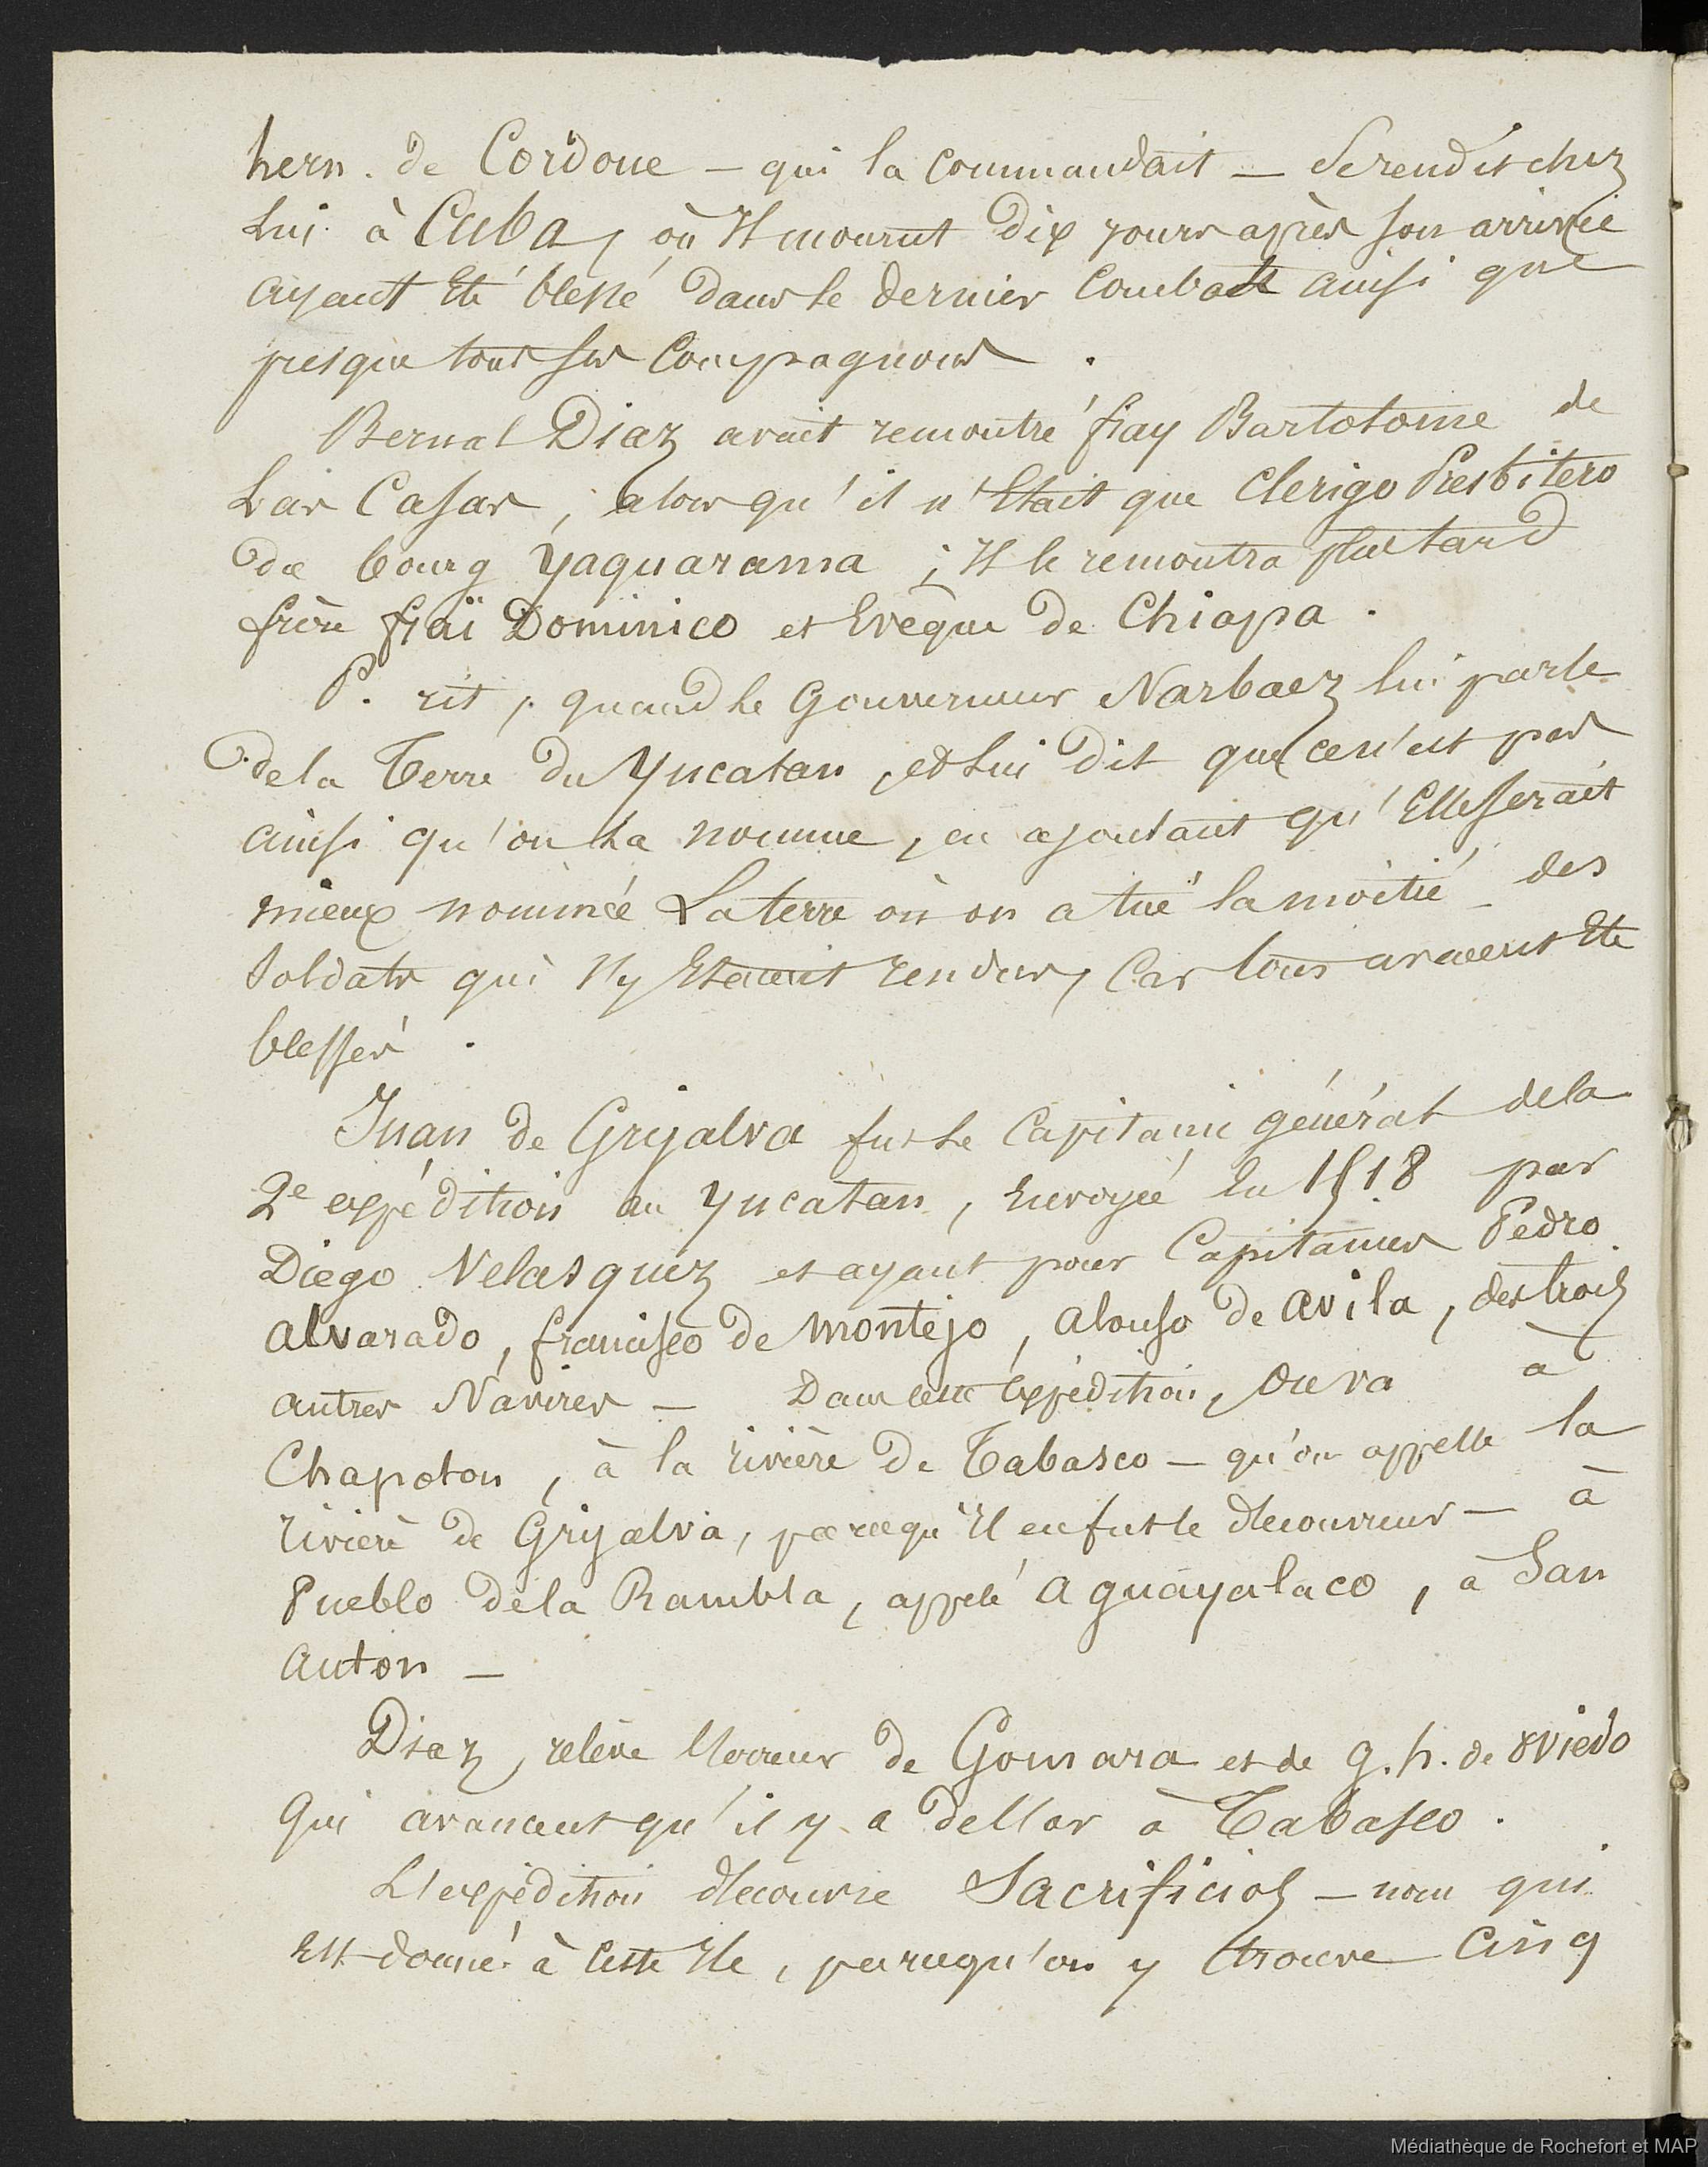 hern. de Cordoue — qui la commandait — se rendit chez
lui à Cuba, où Il mourut dix jours après son arrivée
ayant Eté blessé dans le dernier Combat ainsi que
presque tous ses Compagnons.
Bernal Diaz avait rencontré fray Bartolome de
Las Casas, alors qu'il n'Etait que Clerigo Presbitero
du bourg Yaguarama ; Il le rencontra plus tard
frère fraï Dominico et Evêque de Chiapa.
P. rit, quand le Gouverneur Narbaez lui parle
de la Terre du Yucatan, et lui dit que ce n'est pas
ainsi qu'on la nomme, en ajoutant qu'Elle serait
mieux nommée La terre où on a tué la moitié des
Soldats qui s'y Etaient rendus, Car tous avaient Eté
blessés.
Juan de Grijalva fut le Capitaine général de la
2e expédition au Yucatan, Envoyée En 1518 par
Diego Velasquez et ayant pour Capitaines Pedro
Alvarado, francisco de Montejo, Alonso de Avila, des trois
autres Navires — Dans cette Expédition, On va à
Chapoton, à la rivière de Tabasco — qu'on appelle la
rivière de Grijalva, parcequ'Il en fut le découvreur — à
Pueblo de la Rambla, appelé Aguayalaco, à San
Anton —
Diaz, relève l'erreur de Gomara et de g. h. de Oviedo
Qui avancent qu'il y a de l'or à Tabasco.
L'expédition découvre Sacrificios — nom qui
Est donné à Cette Ile, parcequ'on y trouve Cinq
Médiathèque de Rochefort et MAP